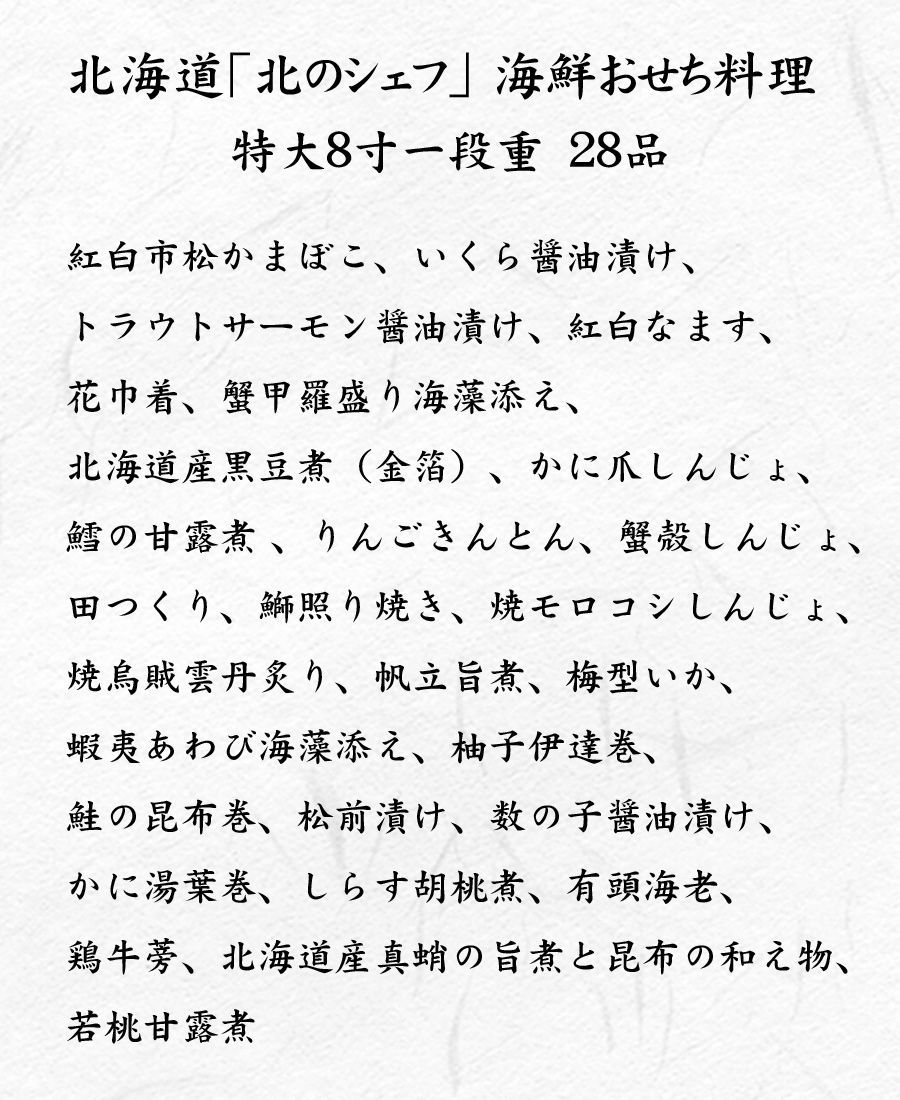 北海道「北のシェフ」 海鮮おせち料理
特大8寸一段重 28品
紅白市松かまぼこ、いくら醤油漬け、
トラウトサーモン醤油漬け、紅白なます、
花巾着、蟹甲羅盛り海藻添え、
北海道産黒豆煮（金箔）、かに爪しんじょ、
鱈の甘露煮 、りんごきんとん、蟹殻しんじょ、
田つくり、鰤照り焼き、焼モロコシしんじょ、
焼烏賊雲丹炙り、帆立旨煮、梅型いか、
蝦夷あわび海藻添え、柚子伊達巻、
鮭の昆布巻、松前漬け、数の子醤油漬け、
かに湯葉巻、しらす胡桃煮、有頭海老、
鶏牛蒡、北海道産真蛸の旨煮と昆布の和え物、
若桃甘露煮